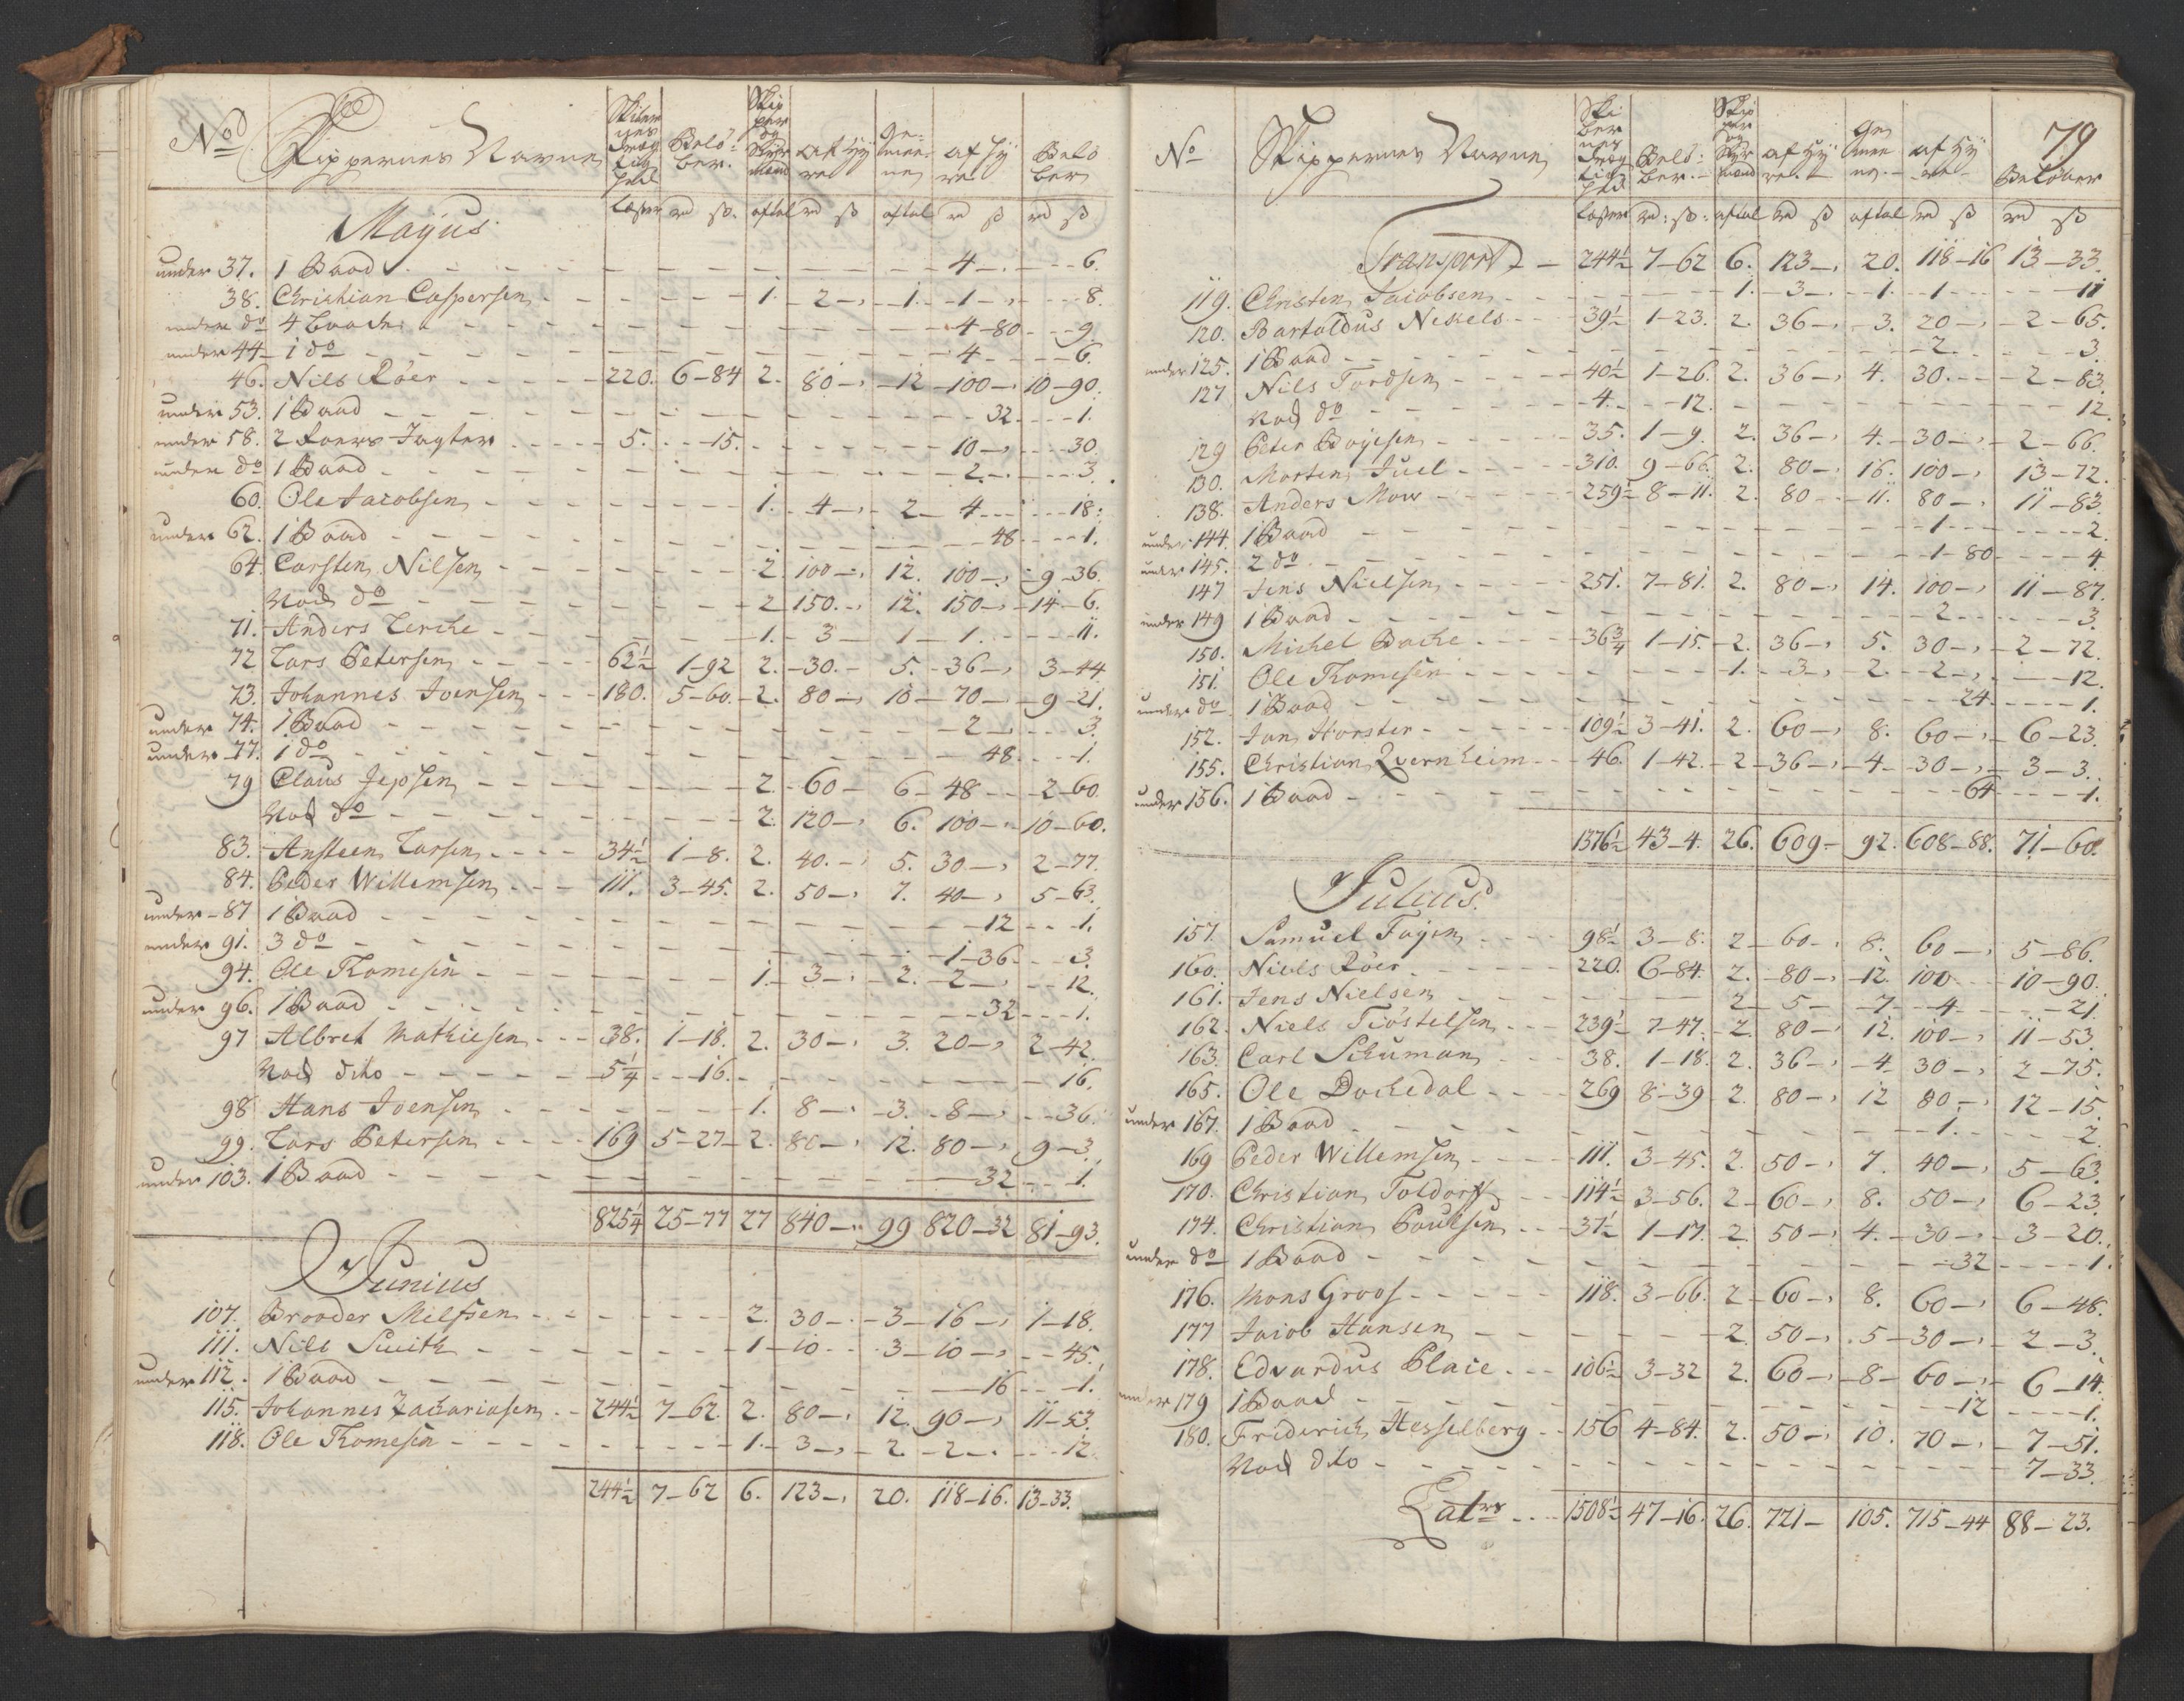 No Skippernes Navne Skibernes Drægtighed Beløber. Skipper og Styrmænd af Hyre Gemeene af Hyre Beløber
Læster rd ß. aftal rd ß aftal rd ß rd ß
Mayus
under 37. 1 Baad 4 6.
38. Christian Caspersen 1. 2 1. 1 8.
under do 4 Baade 4-80 9.
under 44 1 do 4 6.
46. Nils Röer 220. 6-84 2. 80 12 100 10-90.
under 53. 1 Baad 32. 1.
under 58. 2 Roers Jagter 5. 15. 10 30.
under do 1 Baad 2 3.
60. Ole Jacobsen 1. 4 2 4 18.
under 62. 1 Baad 48 1.
64. Carsten Nilsen 2. 100 12. 100 9-36.
Nok do 2 150. 12. 150 14-6.
71. Anders Lerche 1. 3 1 1. 11.
72 Lars Petersen 62½ 1-92 2. 30. 5. 36 3-44
73. Johannes Joensen 180. 5-60. 2. 80 10 70 9-21.
under 74. 1 Baad 2 3.
under 77. 1 do 48. 1.
79 Claus Jepsen 2. 60 6 48 2-60
Nok do 2. 120 6. 100 10-60.
83. Ansteen Larsen 34½ 1-8. 2. 40. 5. 30 2-77.
84. Peder Willemsen 111. 3-45. 2. 50 7. 40 5-63.
under 87 1 Baad 12 1.
under 91. 3 do 1-36. 3.
94. Ole Thomesen 1. 3 2. 2 12.
under 96. 1 Baad 32 1.
97 Albret Mathiesen 38. 1-18. 2. 30 3. 20 2-42.
Nok dito 5¼ 16. 16.
98 Hans Joensen 1. 8 3. 8 36.
99. Lars Petersen 169 5-27 2. 80 12. 80 9-3.
under 103. 1 Baad 32 1.
825¼ 25-77 27 840 99 820-32 81-93.
Junius
107. Brooder Milssen 2. 30 3 16 1-18.
111. Nils Smith 1 10 3 10 45.
under 112. 1 Baad 16 1.
115. Johannes Zachariasen 244½ 7-62 2. 80 12. 90 11-53.
118. Ole Thomesen 1. 3 2. 2 12
244½ 7-62 6. 123 20. 118-16. 13-33.
79
No Skippernes Navne Skibernes Drægtighed Beløber. Skipper og Styrmænd af Hyre Gemeene af Hyre Beløber
Læster rd: ß: aftal rd ß aftal rd ß rd ß
Transport 244½ 7-62 6. 123 20. 118-16 13-33.
119. Christen Jacobsen 1. 3 1. 1 11
120. Bartoldus Nekels 39½ 1-23. 2. 36 3. 20 2-65.
under 125. 1 Baad 2. 3.
127 Nils Tordsen 40½ 1-26. 2. 36 4. 30. 2-83.
Nok do 4. 12. 12.
129 Peter Boysen 35. 1-9. 2. 36 4. 30 2-66.
130. Morten Juel 310. 9-66. 2. 80 16. 100 13-72.
138. Anders Mow 259½ 8-11. 2. 80 11. 80 11-83.
under 144. 1 Baad 1. 2.
under 145. 2 do 1-80 4.
147 Jens Nielsen 251. 7-81. 2. 80 14. 100 11-87.
under 149 1 Baad 2 3.
150. Michel Bache 36¾ 1-15. 2. 36 5. 30 2-72.
151. Ole Thomesen 1. 3 2. 2 12.
under do 1 Baad 24. 1.
152. Jan Horster 109½ 3-41. 2. 60 8. 60 6-23.
155. Christian Qvernheim 46. 1-42. 2 36 4 30 3-3.
under 156. 1 Baad 64 1.
1376½ 43-4. 26. 609 92. 608-88. 71-60.
Julius
157. Samuel Fagen 98½ 3-8. 2 60 8. 60 5-86.
160. Niels Röer 220. 6-84. 2. 80 12. 100 10-90.
161. Jens Nielsen 2 5 7 4 21.
162. Niels Tiöstelsen 239½ 7-47. 2. 80 12. 100 11-53.
163. Carl Schuman 38. 1-18. 2. 36 4 30 2-75.
165. Ole Dochedal 269 8-39 2. 80 12 80 12-15.
under 167. 1 Baad 1. 2.
169 Peder Willemsen 111. 3-45. 2. 50 7. 40 5-63.
170. Christian Toldorff 114½ 3-56. 2 60 8. 50 6-23.
174. Christian Poulsen 37½ 1-17. 2. 50 4. 30 3-20.
under do 1 Baad 32 1.
176. Mons Groos 118. 3-66. 2 60 8. 60 6-48.
177 Jacob Hansen 2. 50 5 30 2-3.
178. Edvardus Place 106½ 3-32 2. 60 8 60 6-14.
under 179 1 Baad 12 1.
180. Friderich Hesselberg 156 4-84. 2. 50 10. 70 7-51.
Nok dito 7-33.
Latrs 1508½ 47-16. 26. 721 105. 715-44 88-23.